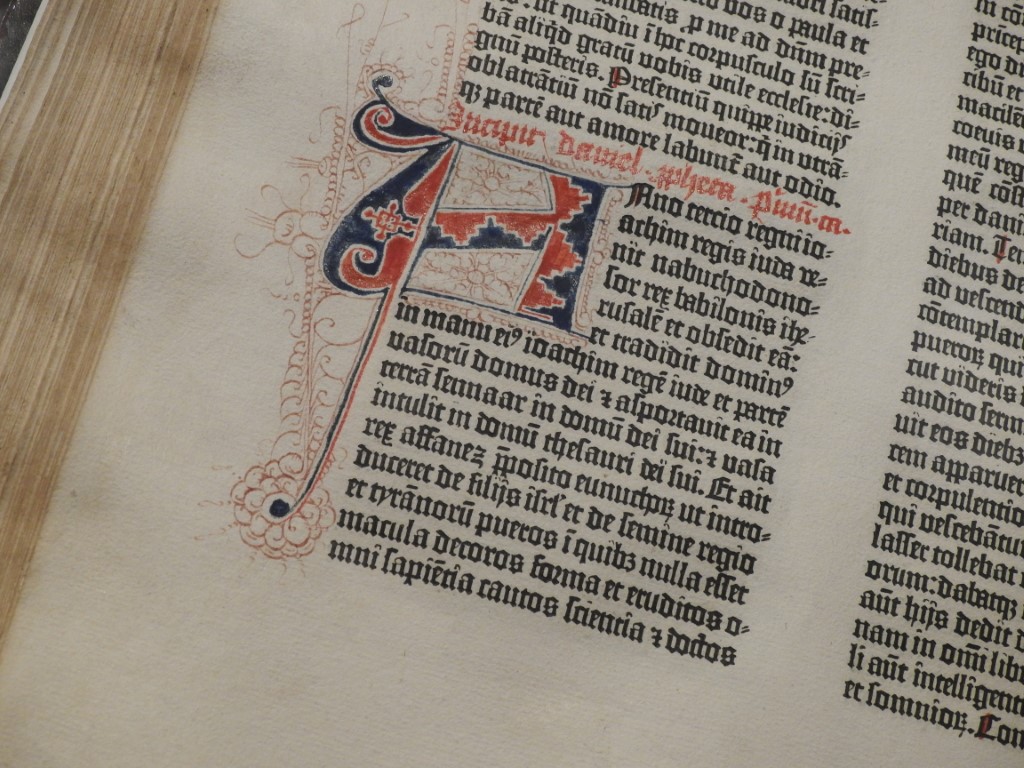 bos o paula et
p me ad dnm pre-
bā aliqd gratū vobis utile ecclesie: di-
gnū posteris. Presentiū quippe iudicijs
oblatrātiū nō satis moueor: q̄ in utrā-
qꝫ partē aut amore labunt̄ aut odio.
Incipit daniel ꝓpheta. Pimū. ca.
Anno tercio regni io-
achim regis iuda ve-
nit nabuchodono-
sor rex babilonis ihr-
rusalē et obsedit eā:
et tradidit dominꝰ
in manu eiꝰ ioachim regē iude et partē
vasorū domus dei ⁊ asportauit ea in
terrā sennaar in domū dei sui: ⁊ vasa
intulit in domū thesauri dei sui. Et ait
rex affanez p̄posito eunuchoꝝ ut intro-
duceret de filijs isrl et de semine regio
et tyrānorū pueros ī quibꝫ nulla esset
macula decoros forma et eruditos o-
mni sapiētia cautos scientia ⁊ doctos
diebus
ad vescend
cōtemplar
pueroꝝ qui
cut videris
audito serm
uit eos diebꝫ
cem apparuer
et corpulentio
qui vescebātur
lasser tollebat
orum: dabatqꝫ
aūt hijs dedit
nam in omī libr
li aūt intelligenti
et somnioꝝ. Con